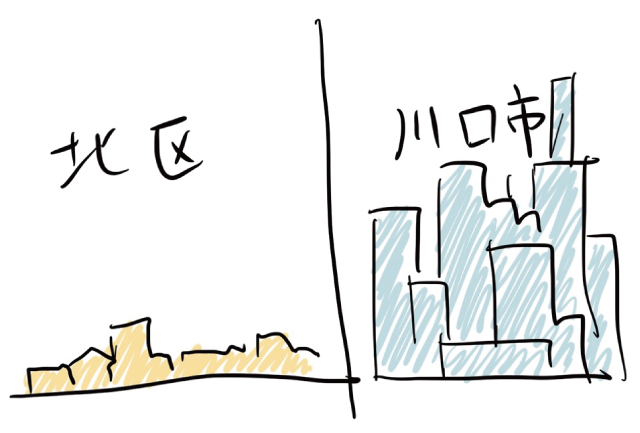 北区
川口市